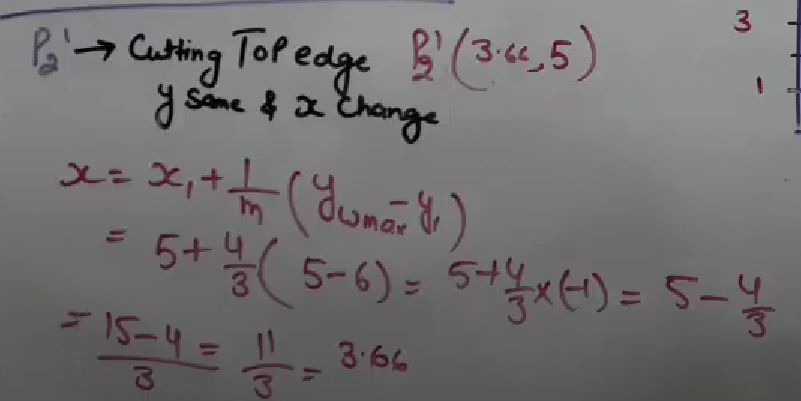 P₂' → Cutting Top edge P₂'(3.66, 5)
y same & x change
x = x₁ + 1/m (ywmax - y₁)
= 5 + 4/3 ( 5 - 6) = 5 + 4/3 × (-1) = 5 - 4/3
= 15 - 4 / 3 = 11/3 = 3.66
3
1